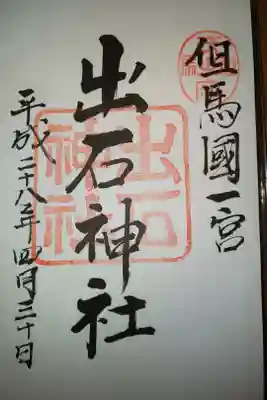 但馬國一宮
出石神社
平成二十八年四月三十日
出石神社